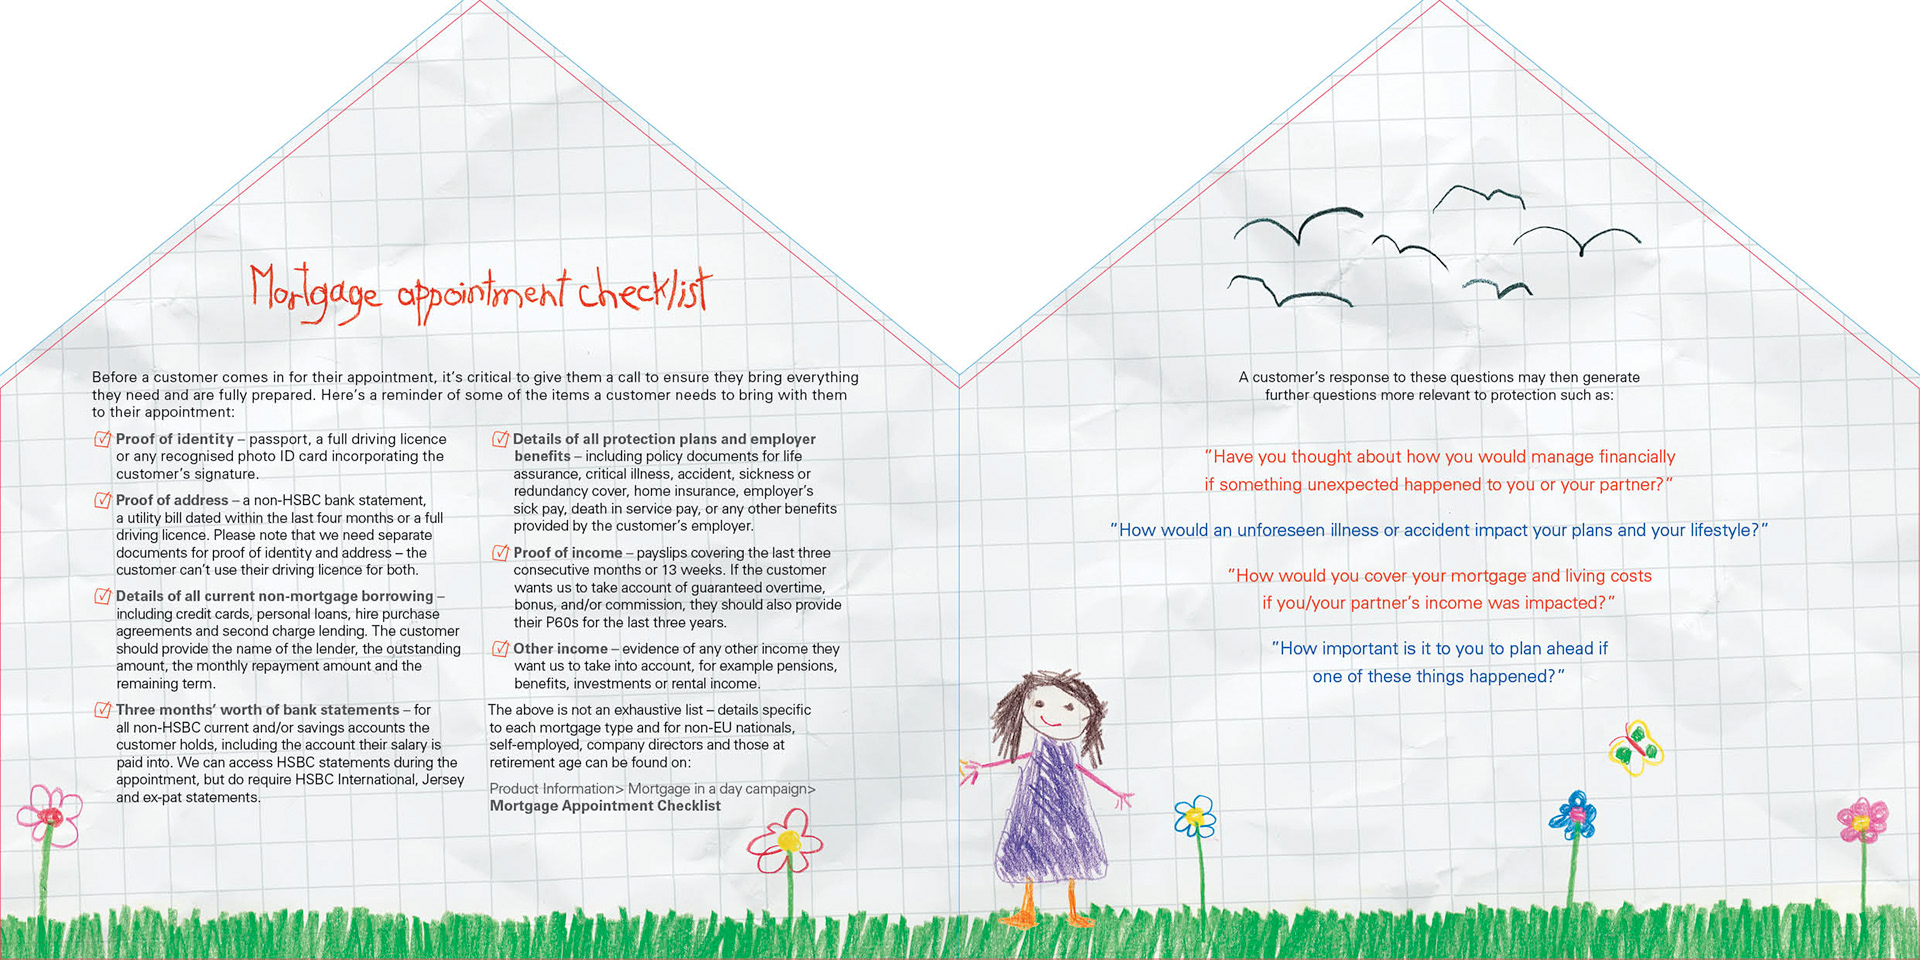 Mortgage appointment checklist
Before a customer comes in for their appointment, it's critical to give them a call to ensure they bring everything
they need and are fully prepared. Here's a reminder of some of the items a customer needs to bring with them
to their appointment:
Proof of identity – passport, a full driving licence
or any recognised photo ID card incorporating the
customer's signature.
Proof of address – a non-HSBC bank statement,
a utility bill dated within the last four months or a full
driving licence. Please note that we need separate
documents for proof of identity and address – the
customer can't use their driving licence for both.
Details of all current non-mortgage borrowing –
including credit cards, personal loans, hire purchase
agreements and second charge lending. The customer
should provide the name of the lender, the outstanding
amount, the monthly repayment amount and the
remaining term.
Three months' worth of bank statements – for
all non-HSBC current and/or savings accounts the
customer holds, including the account their salary is
paid into. We can access HSBC statements during the
appointment, but do require HSBC International, Jersey
and ex-pat statements.
Details of all protection plans and employer
benefits – including policy documents for life
assurance, critical illness, accident, sickness or
redundancy cover, home insurance, employer's
sick pay, death in service pay, or any other benefits
provided by the customer's employer.
Proof of income – payslips covering the last three
consecutive months or 13 weeks. If the customer
wants us to take account of guaranteed overtime,
bonus, and/or commission, they should also provide
their P60s for the last three years.
Other income – evidence of any other income they
want us to take into account, for example pensions,
benefits, investments or rental income.
The above is not an exhaustive list – details specific
to each mortgage type and for non-EU nationals,
self-employed, company directors and those at
retirement age can be found on:
Product Information> Mortgage in a day campaign>
Mortgage Appointment Checklist
A customer's response to these questions may then generate
further questions more relevant to protection such as:
"Have you thought about how you would manage financially
if something unexpected happened to you or your partner?"
"How would an unforeseen illness or accident impact your plans and your lifestyle?"
"How would you cover your mortgage and living costs
if you/your partner's income was impacted?"
"How important is it to you to plan ahead if
one of these things happened?"